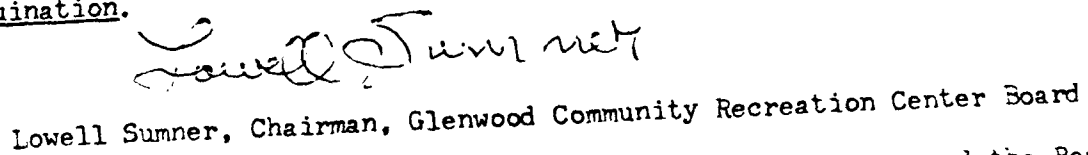 uination.
Lowell Sumner
Lowell Sumner, Chairman, Glenwood Community Recreation Center Board